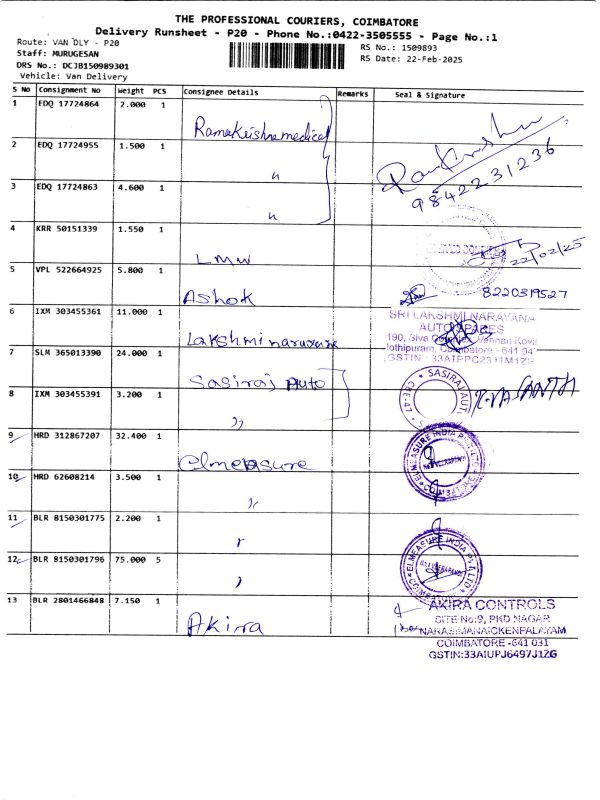 THE PROFESSIONAL COURIERS, COIMBATORE
Delivery Runsheet - P20 - Phone No.:0422-3505555 - Page No.:1
Route: VAN DLY - P20
RS No.: 1509893
Staff: MURUGESAN
RS Date: 22-Feb-2025
DRS No.: DCJB150989301
Vehicle: Van Delivery
S No Consignment No Weight PCS Consignee Details Remarks Seal & Signature
1 EDQ 17724864 2.000 1 Ramakrishna medical
2 EDQ 17724955 1.500 1 "
9842231236
3 EDQ 17724863 4.600 1 "
4 KRR 50151339 1.550 1 LMW
22/02/25
5 VPL 522664925 5.800 1 Ashok 8220319527
6 IXM 303455361 11.000 1 Lakshmi narayana
SRI LAKSHMI NARAYANA
AUTO SPARES
190, Siva Vennan Kovil
Coimbatore - 641 04
7 SLM 365013390 24.000 1 Sasiraj Auto
SASIRAJ AUTO
8 IXM 303455391 3.200 1 ,,
9 HRD 312867207 32.400 1 Elmeasure
ELMEASURE INDIA PVT. LTD
COIMBATORE
10 HRD 62608214 3.500 1 ,,
11 BLR 8150301775 2.200 1
12 BLR 8150301796 75.000 5
ELMEASURE INDIA PVT. LTD
COIMBATORE
13 BLR 2801466848 7.150 1 Akira
AKIRA CONTROLS
SITE No:9, PKD NAGAR
NARASIMANAICKENPALAYAM
COIMBATORE -641 031
GSTIN:33AIUPJ6497J1ZG